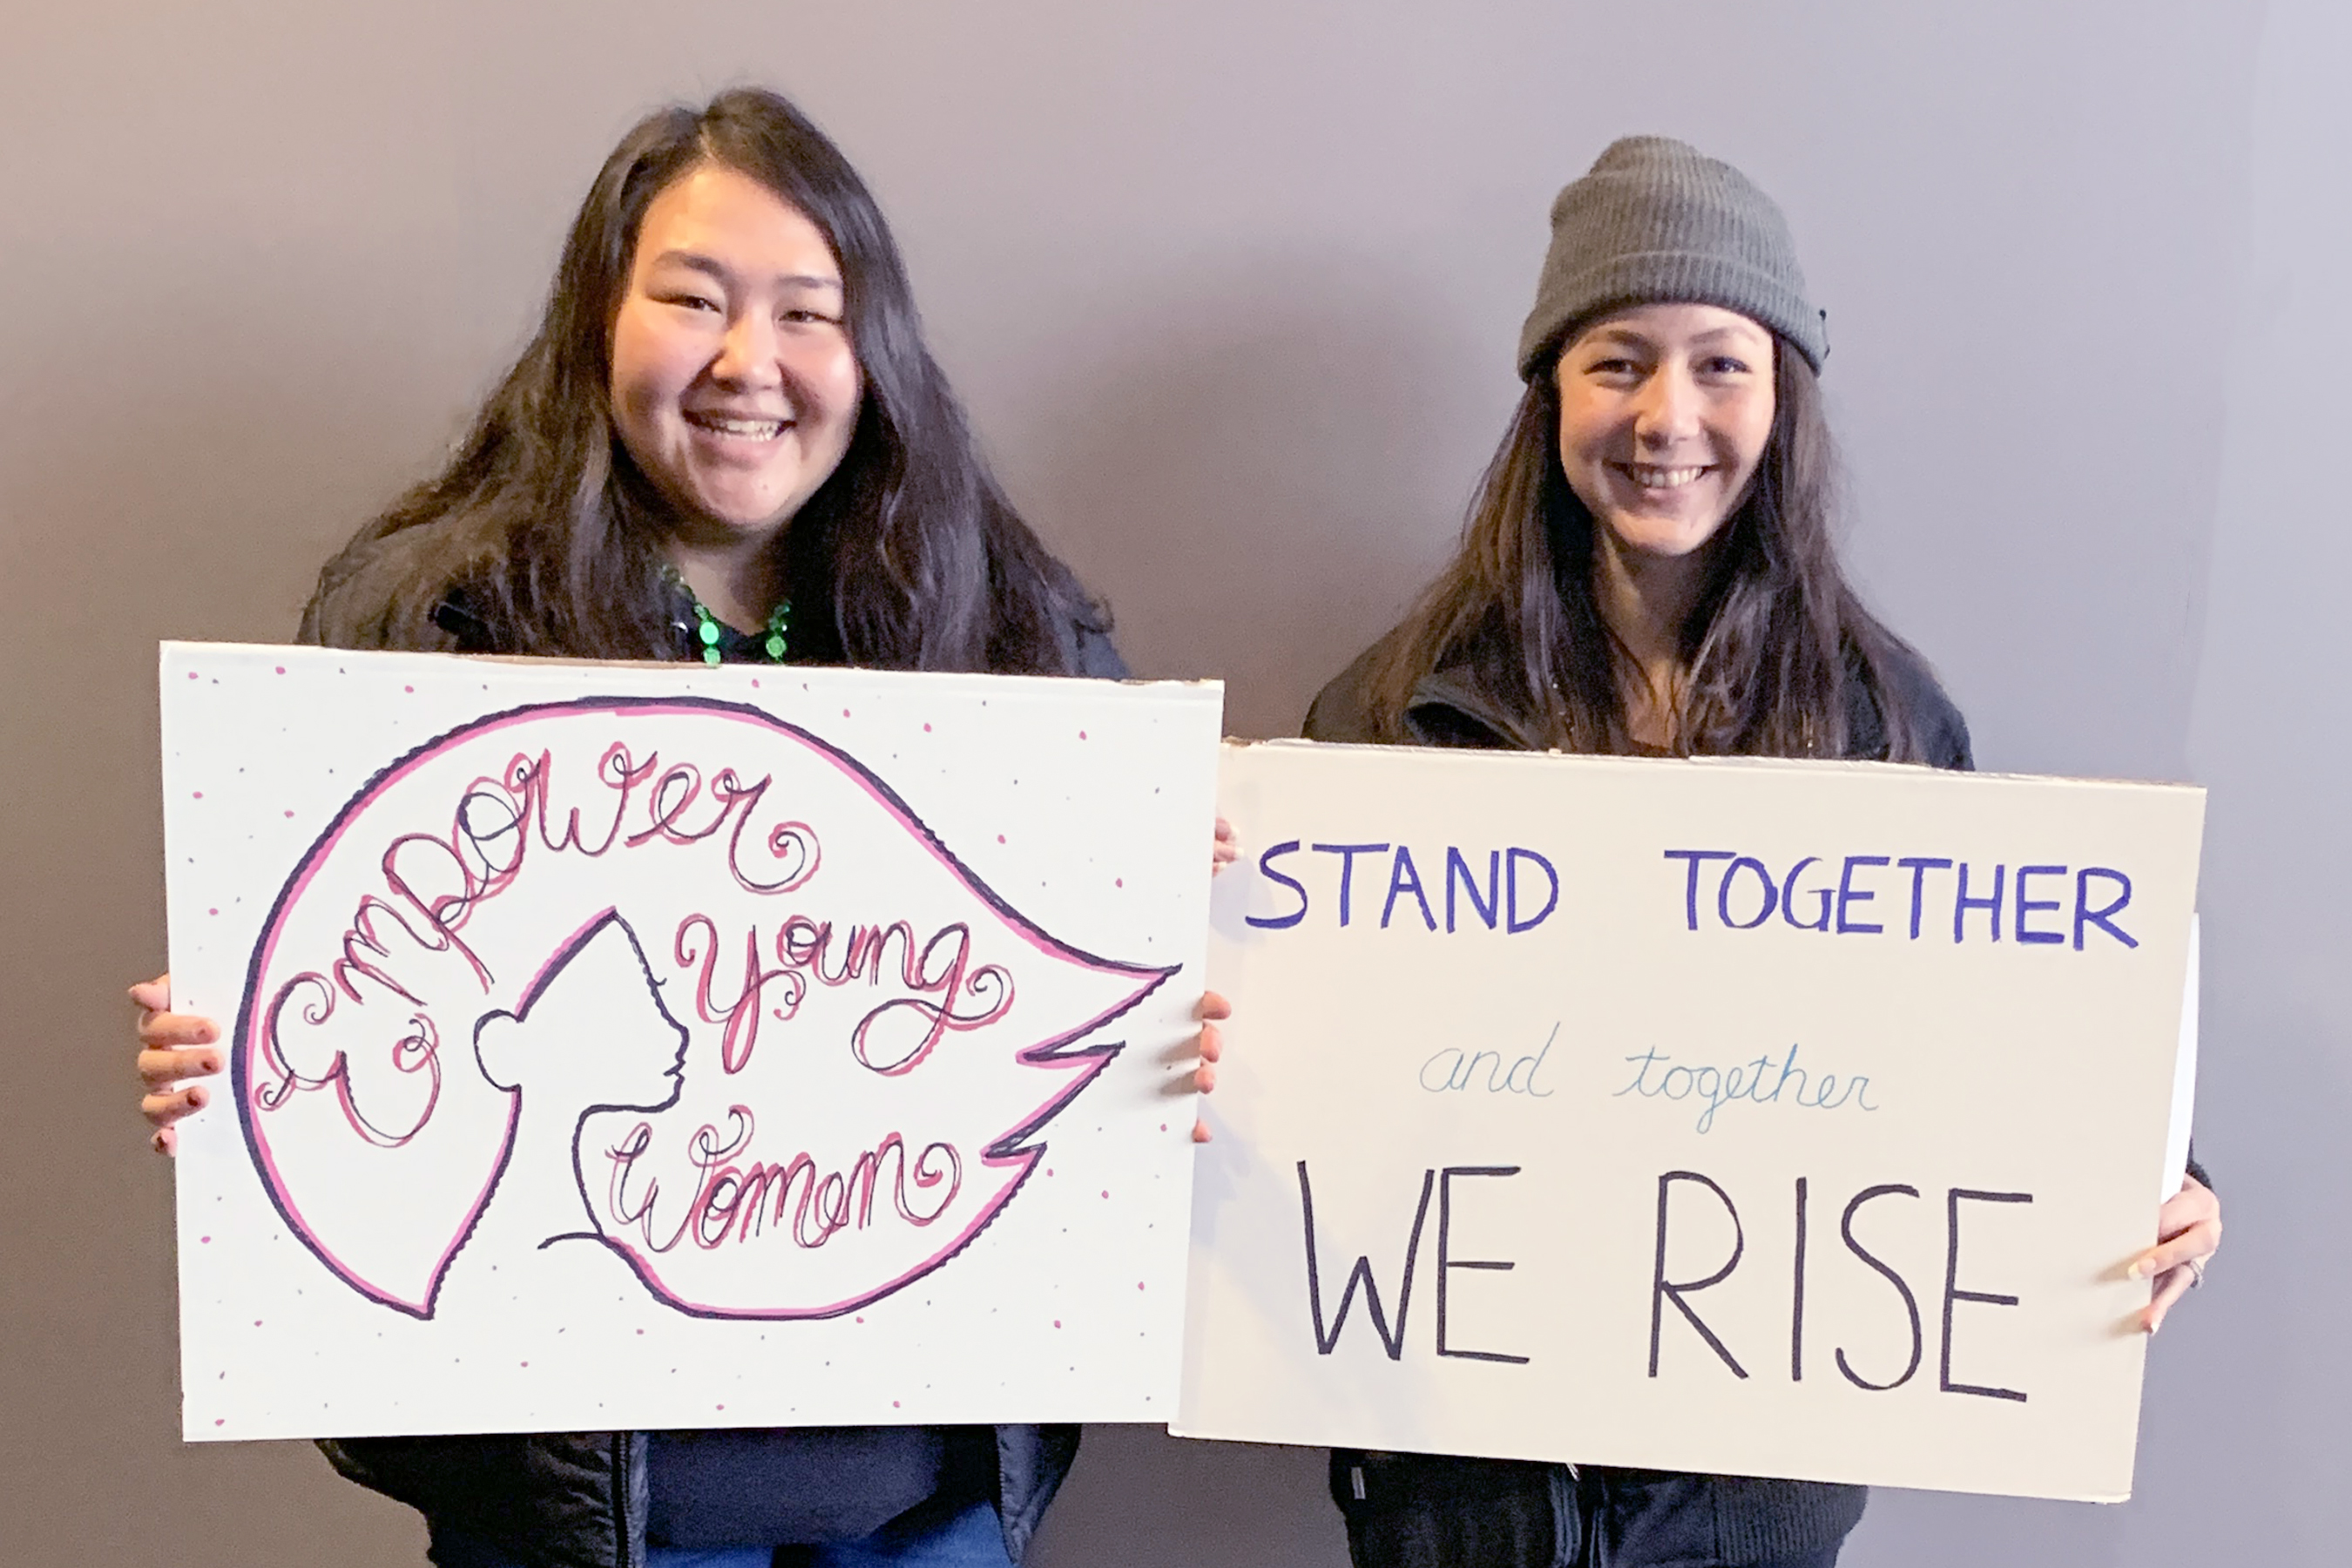 Empower
Young
Women
STAND TOGETHER
and together
WE RISE